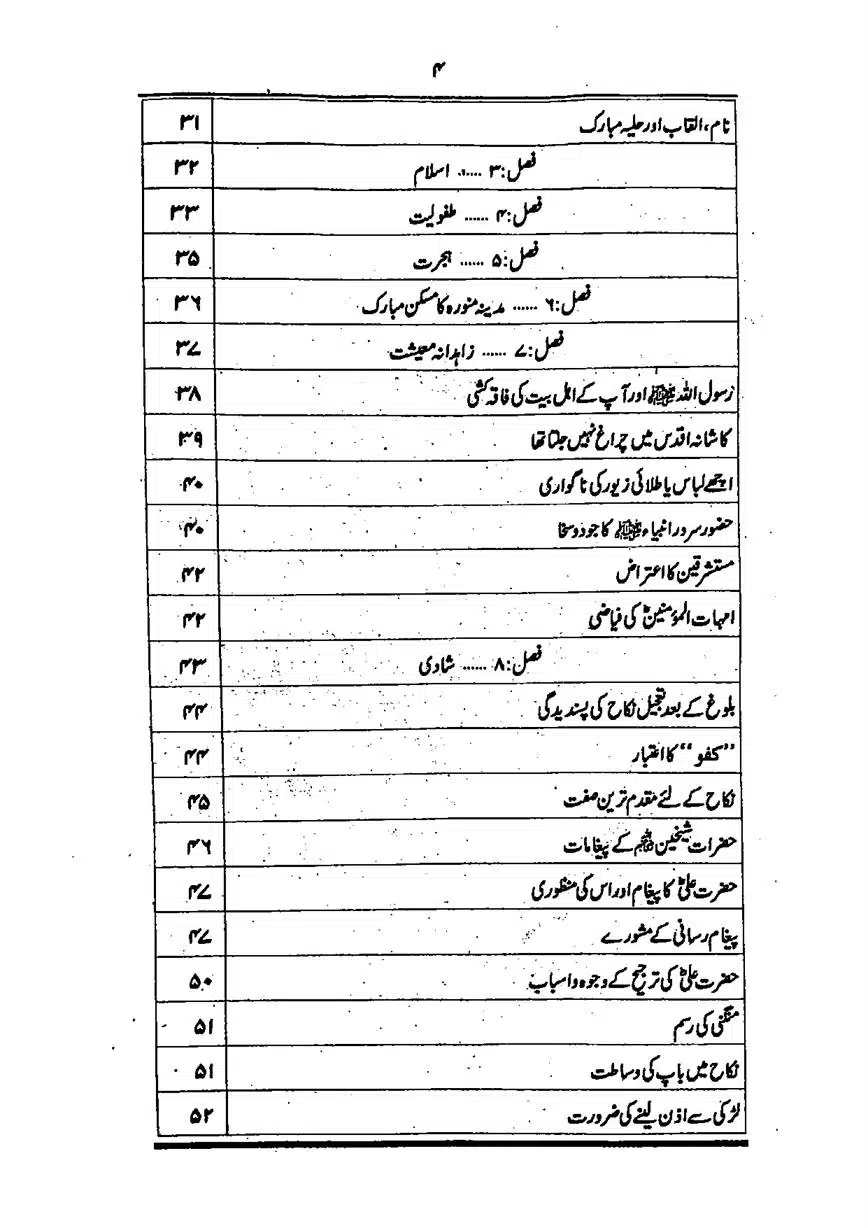 ۴
نام، القاب اور حلیہ مبارک ۳۱
فصل:۳ ...... اسلام ۳۲
فصل:۴ ...... طفولیت ۳۳
فصل:۵ ...... ہجرت ۳۵
فصل:۶ ...... مدینہ منورہ کا مسکن مبارک ۳۶
فصل:۷ ...... زاہدانہ معیشت ۳۷
رسول اللہ ﷺ اور آپ کے اہل بیت کی فاقہ کشی ۳۸
کاشانہ اقدس میں چراغ نہیں جلتا تھا ۳۹
اچھے لباس یا طلائی زیور کی ناگواری ۴۰
حضور سرور انبیاء ﷺ کا جود و سخا ۴۰
مستشرقین کا اعتراض ۴۲
امہات المؤمنینؓ کی فیاضی ۴۲
فصل:۸ ...... شادی ۴۳
بلوغ کے بعد تعجیل نکاح کی پسندیدگی ۴۴
”کفو“ کا اعتبار ۴۴
نکاح کے لئے مقدم ترین صفت ۴۵
حضرات شیخین رضی اللہ عنہم کے پیغامات ۴۶
حضرت علیؓ کا پیغام اور اس کی منظوری ۴۷
پیغام رسانی کے مشورے ۴۷
حضرت علیؓ کی ترجیح کے وجوہ و اسباب ۵۰
منگنی کی رسم ۵۱
نکاح میں باپ کی وساطت ۵۱
لڑکی سے اذن لینے کی ضرورت ۵۲